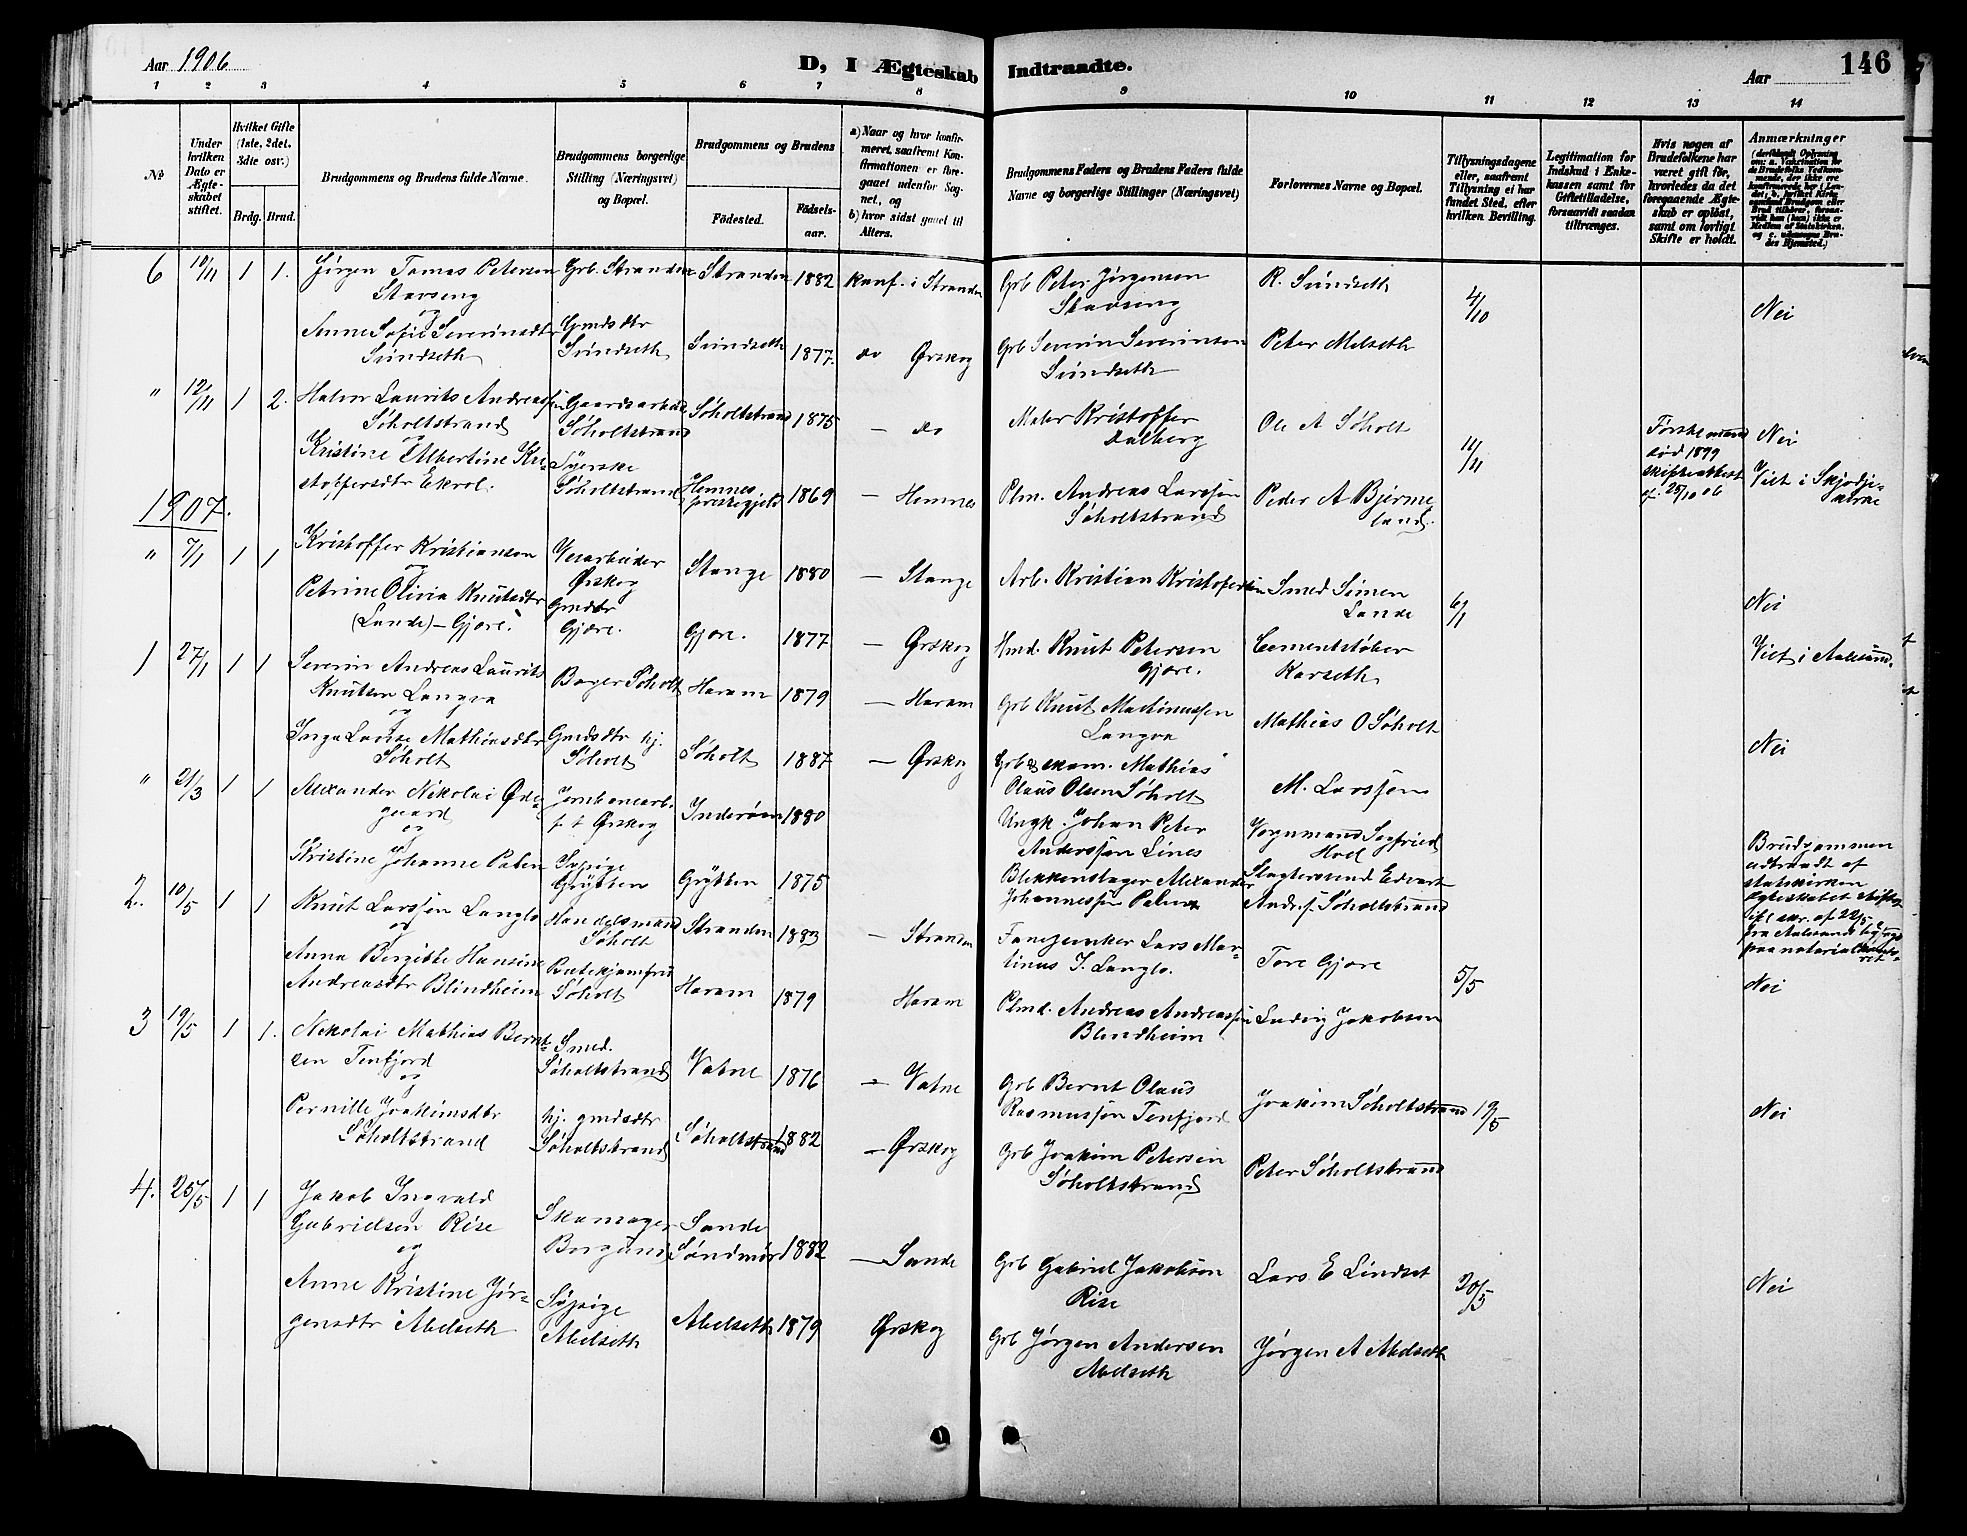 Aar 1906
D, I Ægteskab Indtraadte.
Aar
146
1 2 3 4 5 6 7 8 9 10 11 12 13 14
No
Under hvilken Dato er Ægteskabet stiftet.
Hvilket Gifte (1ste, 2det, 3die osv.)
Brdg. Brud.
Brudgommens og Brudens fulde Navne.
Brudgommens borgerlige Stilling (Næringsvei) og Bopæl.
Brudgommens og Brudens
Födested.
Födselsaar.
a) Naar og hvor konfirmeret, saafremt Konfirmationen er foregaaet udenfor Sognet, og
b) hvor sidst gaaet til Alters.
Brudgommens Faders og Brudens Faders fulde Navne og borgerlige Stillinger (Næringsvei)
Forlovernes Navne og Bopæl.
Tillysningsdagene eller, saafremt Tillysning ei har fundet Sted, efter hvilken Bevilling.
Legitimation for Indskud i Enkekassen samt for Giftetilladelse, forsaavidt saadan tiltrænges.
Hvis nogen af Brudefolkene har været gift før, hvorledes da det foregaaende Ægteskab er opløst, samt om lovligt Skifte er holdt.
Anmærkninger
6 10/11 1 1. Jørgen Tomas Petersen Stavseng Grb. Stranden Stranden 1882 Konf. i Stranden Grb Peter Jørgensen Stavseng R. Sundseth 4/10 Nei
og
Anne Sofie Severinsdtr Sundseth Gmdsdtr Sundseth Sundseth 1877. do Ørskog Grb Severin Severinsen Sundseth Peter Melseth
" 12/11 1 2. Halvor Laurits Andreassen Søholtstrand Gaardsarbeid Søholtstrand Søholtstrand 1875 — do Maler Kristoffer Dalberg Ole A Søholt 11/11 Første mand død 1899 skifteattest af 25/10 06 Nei
og
Kristine Albertine Kristoffersdtr Ekrol. Syerske Søholtstrand Hemnes prestegjeld 1869 — Hemnes Plm. Andreas Larssen Søholtstrand Peder A Bjermeland. Viet i Skjodje-kirke
1907.
" 7/1 1 1 Kristoffer Kristiansen Veiarbeider Ørskog Stange 1880 — Stange Arb. Kristian Kristofersen Smed Simen Lande 6/1 Nei
og
Petrine Olivia Knutsdtr (Lande) – Gjøre. Gmdtr Gjøre. Gjøre. 1877 — Ørskog Hmd. Knut Petersen Gjøre. Cementstøber Korseth Viet i Aalesund.
1 27/1 1 1 Severin Andreas Laurits Knutsen Longva Bager Søholt Haram 1879 — Haram Grb Knut Martinussen Longva Mathias O Søholt
og
Inga Louise Mathiasdtr Søholt Gmdsdtr hj. Søholt Søholt 1887 — Ørskog Grb & skom. Mathias Olaus Olsen Søholt M. Larssen Nei
" 21/3 1 1 Alexander Nikolai Ødegaard Jernbanearb. f. t Ørskog Inderøen 1880 Ungk. Johan Peter Anderssen Lines Vognmand Sigfried Hoel
og
Kristine Johanne Palen Sypige Grytten Grytten 1875 Blikkenslager Alexander Johannessen Palen Slagtersvend Edvart Andr.s. Søholtstrand Brudgommen udtraadt af statskirken Ægteskabet stiftet ifl. skr. af 22/5 fra Aalesunds byfogd paa notarialkontoret
2. 10/5 1 1 Knut Larssen Langlo Handelsmand Søholt Stranden 1883 — Stranden Fanejunker Lars Martinus J. Langlo. Tore Gjøre 5/5 Nei
og
Anna Bergitte Hansine Andreasdtr Blindheim Butikjomfru Søholt Haram 1879 Haram Plmd. Andreas Andreassen Blindheim Ludvig Jakobsen
3 19/5 1 1. Nikolai Mathias Berntsen Tenfjord Smed. Søholtstrand Vatne 1876 — Vatne Grb Bernt Olaus Rasmussen Tenfjord Joakim Søholtstrand 19/5 Nei
og
Pernille Joakimsdtr Søholtstrand hj. gmdsdtr Søholtstrand Søholtstrand 1882 — Ørskog Grb Joakim Petersen Søholtstrand Peter Søholtstrand
4. 25/5 1 1 Jakob Ingvald Gabrielsen Rise Skomager Borgund Sande Søndmør 1882 — Sande Grb Gabriel Jakobsen Rise Lars E Lindset 20/5 Nei
og
Anne Kristine Jørgensdtr Abelseth Sypige Abelseth Abelseth 1879 Ørskog Grb Jørgen Andersen Abelseth Jørgen A Abelseth